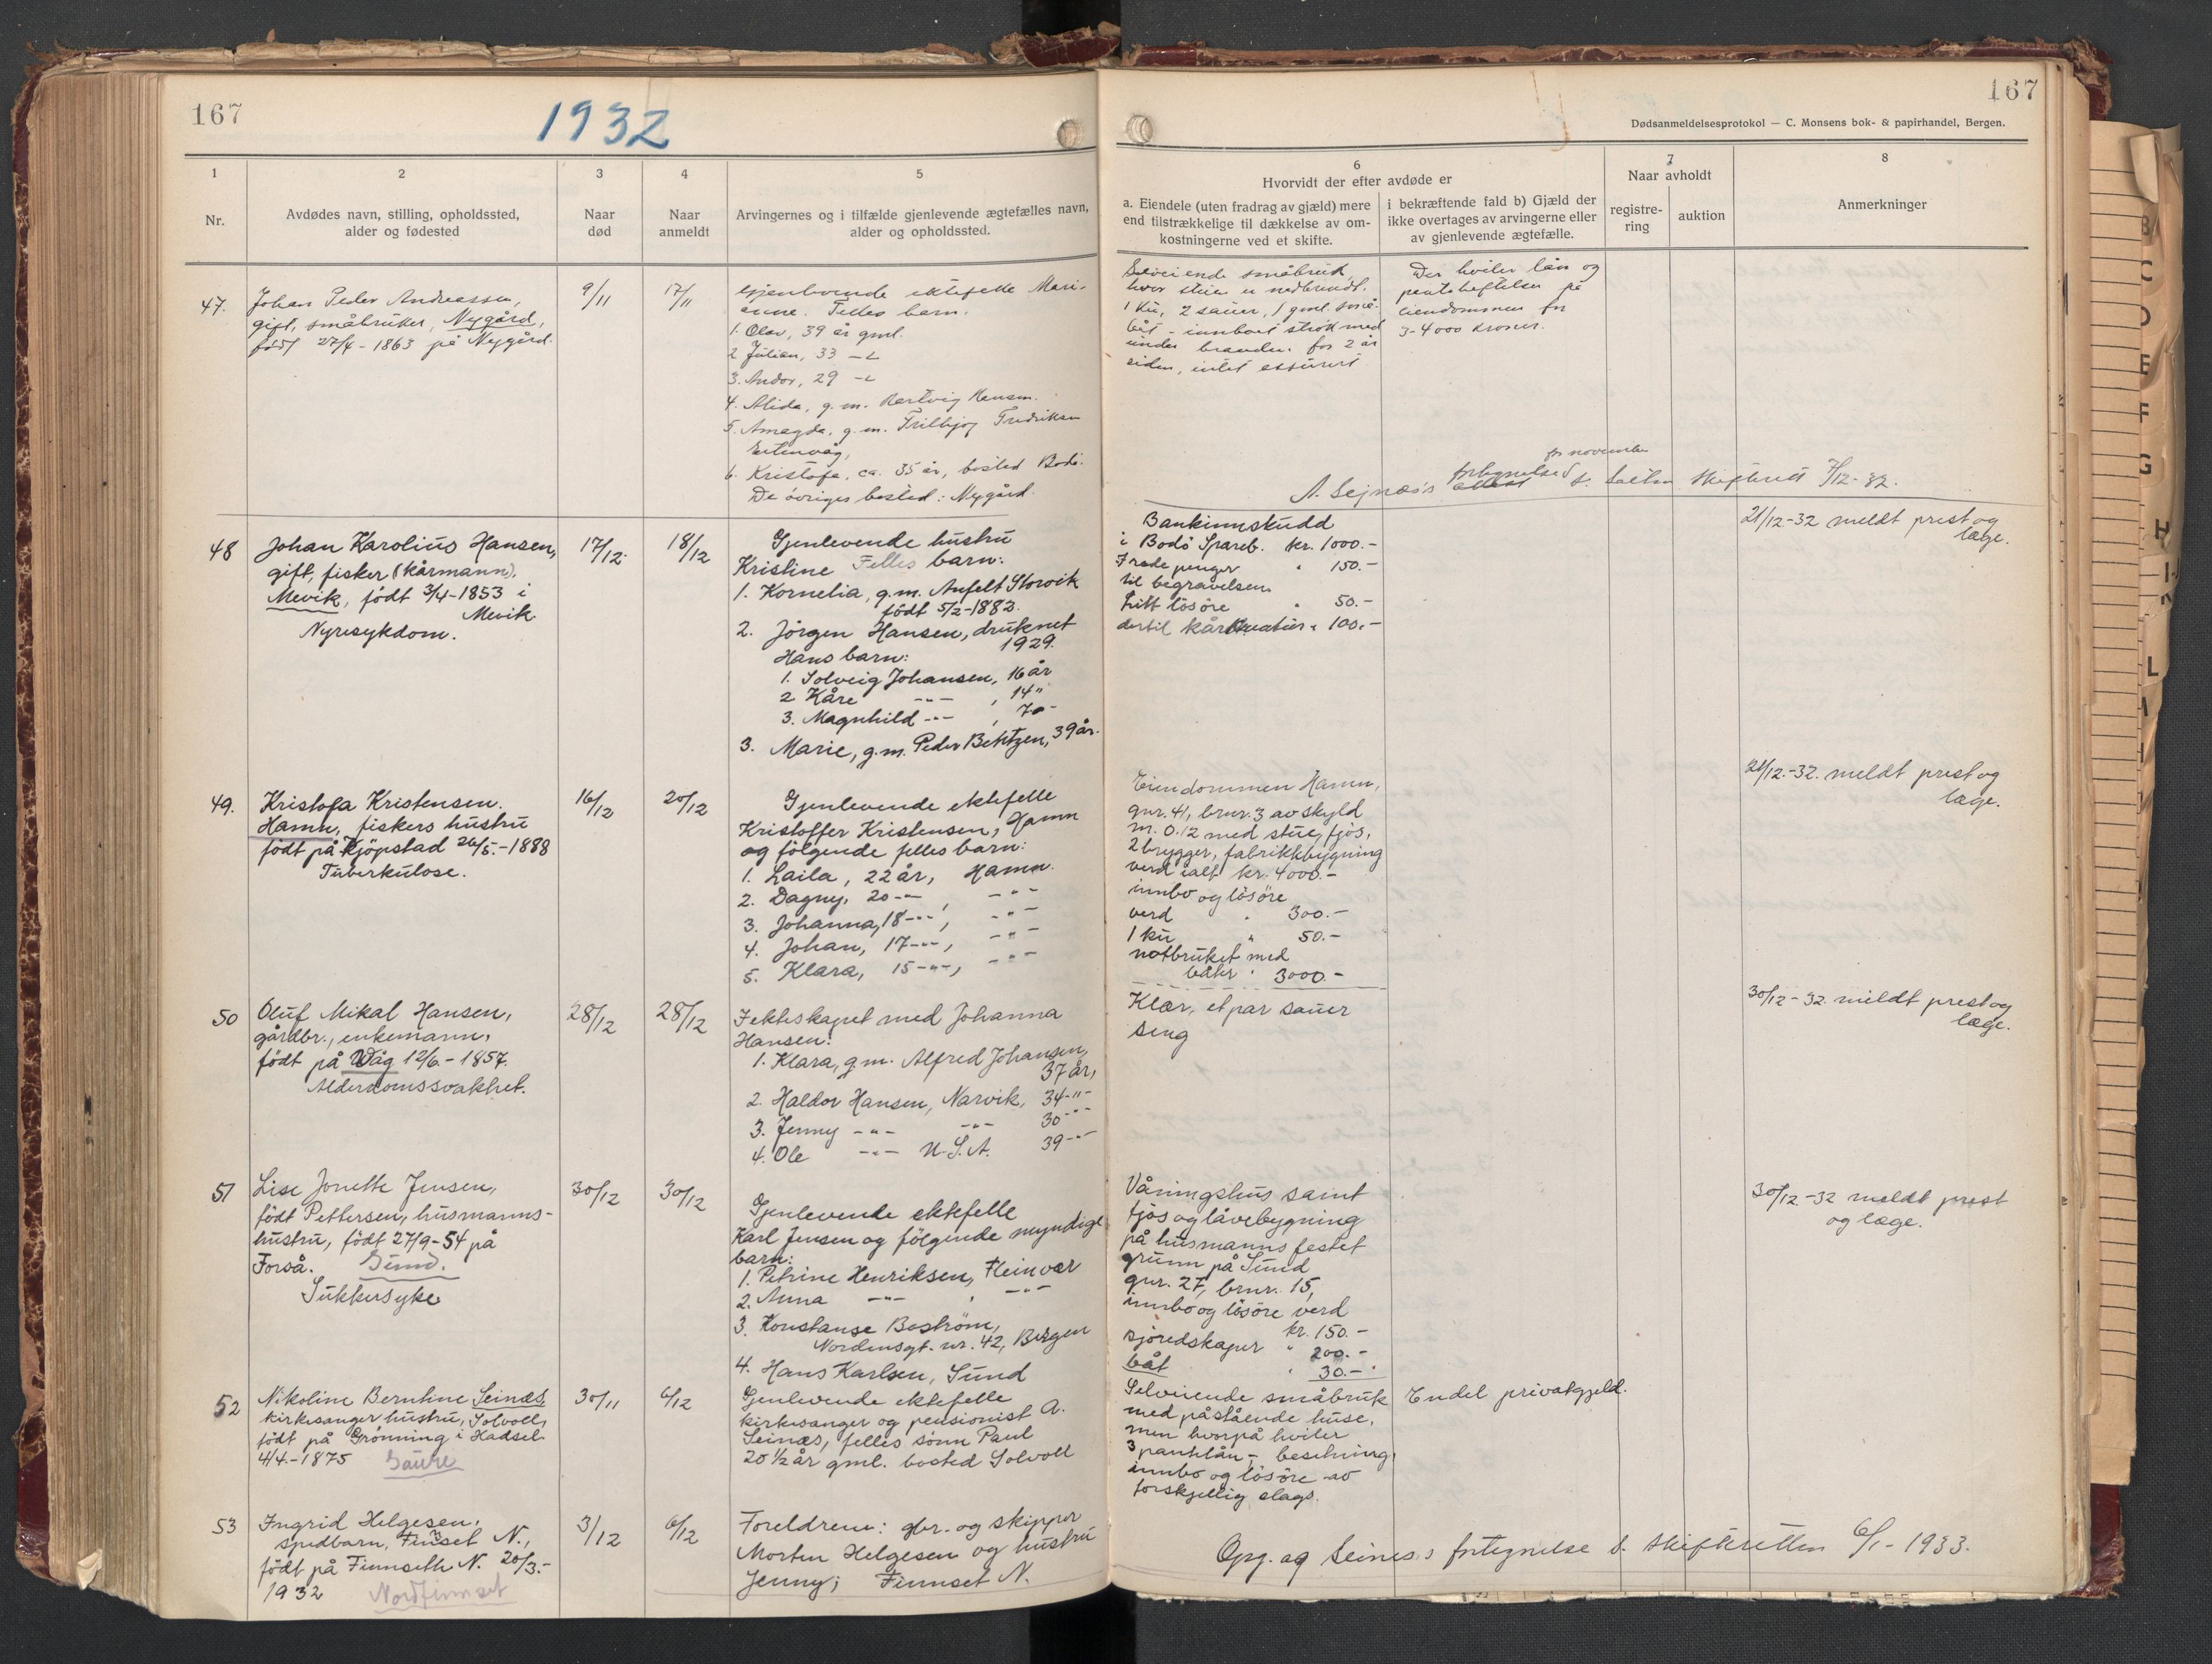 167
1932
167
Dødsanmeldelsesprotokol — C. Monsens bok- & papirhandel, Bergen.
1
2
3
4
5
6
7
8
Nr.
Avdødes navn, stilling, opholdssted,
alder og fødested
Naar
død
Naar
anmeldt
Arvingernes og i tilfælde gjenlevende ægtefælles navn,
alder og opholdssted.
Hvorvidt der efter avdøde er
a. Eiendele (uten fradrag av gjæld) mere
end tilstrækkelige til dækkelse av om-
kostningerne ved et skifte.
i bekræftende fald b) Gjæld der
ikke overtages av arvingerne eller
av gjenlevende ægtefælle.
Naar avholdt
registre-
ring
auktion
Anmerkninger
47.
Johan Peder Andreassen,
gift, småbruker, Nygård,
født 27/4-1863 på Nygård.
9/11
17/11
Gjenlevende ektefelle Mari-
anne. Felles barn.
1. Olav, 39 år gml.
2 Julian, 33
3. Andor, 29
4. Alida, g.m. Hartvig Hansen.
5. Amagda, g.m. Fritthjof Fredriksen
6. Kristofa, ca. 35 år, bosted Bodö.
De övriges bosted: Nygård.
Selveiende småbruk,
hvor stuen er nedbrendt.
1 Ku, 2 sauer, 1 gml. små-
båt - innboet strök med
under branden for 2 år
siden, intet assurert
Der hviler lån og
panteheftelser på
eiendommen for
3-4000 kroner.
for november
A. Sejnæs's fortegnelse t. Salten skifterett 7/12-32.
48
Johan Karolius Hansen,
gift, fisker (kårmann),
Mevik, født 3/4-1853 i
Mevik
Nyresykdom.
17/12.
18/12
Gjenlevende hustru
Kristine Felles barn:
1. Kornelia, g.m. Anfelt Storvik
født 5/2-1882.
2. Jörgen Hansen, druknet
1929.
Hans barn:
1. Solveig Johansen, 16 år
2 Kåre -"- , 14 "
3. Magnhild -"- , 7 "-
3. Marie, g.m. Peder Bentzen, 39 år.
Bankinnskudd
i Bodö Spareb. kr. 1000.-
Trede penger " 150.-
til begravelsen
Litt lösöre " 50.-
dertil kår " 100.-
21/12-32 meldt prest og
læge.
49.
Kristofa Kristensen.
Hamn, fiskers hustru
født på Kjöpstad 26/5.-1888
Tuberkulose.
16/12
20/12
Gjenlevende ektefelle
Kristoffer Kristensen, Hamn
og fölgende felles barn:
1. Laila, 22 år, Hamn.
2. Dagny, 20 -"- , -"-
3. Johanna, 18 -"- , -"-
4. Johan, 17 -"- , -"-
5. Klara, 15 -"- , -"-
Eiendommen Hamn,
gnr. 41, brnr. 3 av skyld
m. 0.12 med stue, fjös,
2 brygger, fabrikkbygning
verd ialt kr. 4000.-
innbo og lösöre
verd " 300.-
1 ku " 50.-
notbruket med
båter " 3000.-
21/12.-32. meldt prest og
læge.
50
Oluf Mikal Hansen,
gårdbr., enkemann,
født på Våg 12/6.-1857.
Alderdomssvakhet.
28/12
28/12
I ekteskapet med Johanna
Hansen:
1. Klara, g.m. Alfred Johansen,
37 år,
2. Haldor Hansen, Narvik, 34 -"-
3. Jenny -"- -"- 30 -"-
4. Ole -"- U.S.A. 39 -"-
Klær, et par sauer
seng
30/12-32 meldt prest og
læge.
51
Lise Jonette Jensen,
født Pettersen, husmanns-
hustru, født 27/9-54 på
Forså. Sund.
Sukkersyke
30/12
30/12
Gjenlevende ektefelle
Karl Jensen og fölgende myndige
barn:
1. Petrine Henriksen, Fleinvær
2. Anna -"- , -"-
3. Konstanse Boström,
Nordensgt. nr. 42, Bergen
4. Hans Karlsen, Sund
Våningshus samt
fjös og låvebygning
på husmanns festet
grunn på Sund
gnr. 27, brnr. 15,
innbo og lösöre verd
kr. 150.-
sjöredskaper " 200.-
båt " 30.-
30/12-32 meldt prest
og læge.
52
Nikoline Berntine Seinæs,
kirkesanger hustru, Solvoll,
født på Grönning i Hadsel
4/4.-1875 Saura
30/11
6/12
Gjenlevende ektefelle
kirkesanger og pensionist A.
Seinæs, felles sönn Paul
20 1/2 år gml. bosted Solvoll
Selveiende småbruk
med påstående huse,
men hvorpå hviler
3 pantelån, - besetning,
innbo og lösöre av
forskjellig slags.
Endel privatgjeld.
53
Ingrid Helgesen,
spedbarn, Finnset N.,
født på Finnseth N. 20/3.-
1932 Nordfinnset
3/12
6/12
Foreldrene: gbr. og skipper
Morten Helgesen og hustru
Jenny; Finnset N.
Opg. og Seines's fortegnelse t. skifteretten 6/1-1933.
B
C
D
E
F
G
H
L